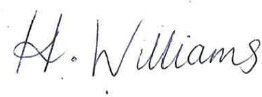 H. Williams